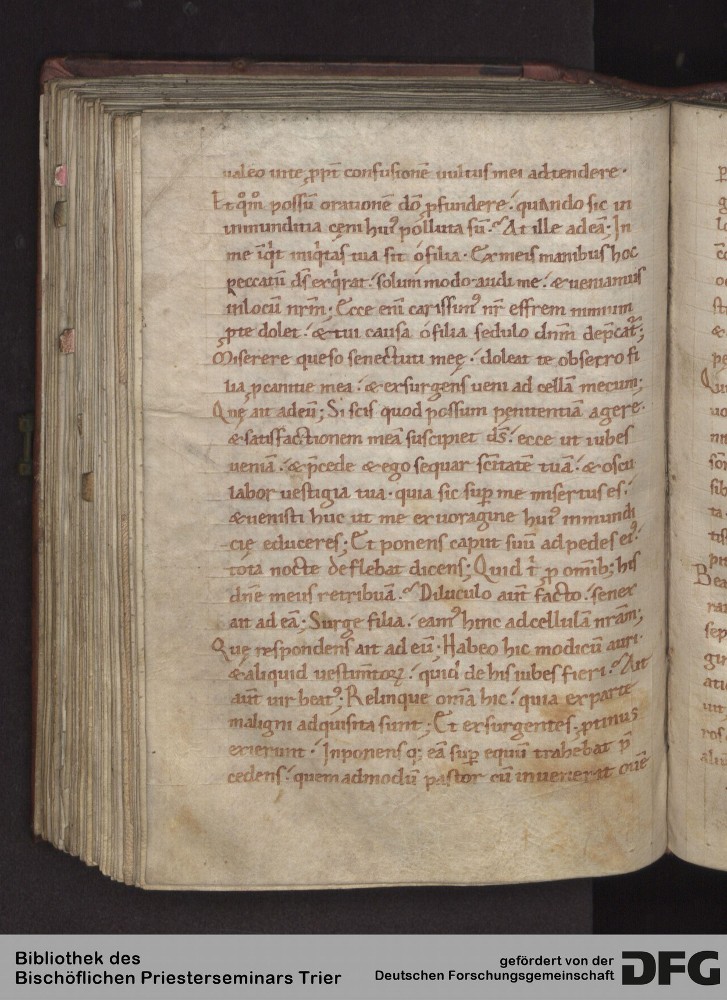 ualeo in te ꝓpt̄ confusionē uultus mei adtendere.
Et qm̄ possū orationē dō ꝓfundere. quando sic in
inmunditia ceni hui⁹ polluta sū. At ille ad eā. In
me inq̇t iniq̇tas tua sit o filia. Ex meis manibus hoc
peccatū d̄s exq̇rat. solum modo audi me. & ueniamus
in locū nr̄m. Ecce eni carissim⁹ nr̄ effrem nimium
ꝓ te dolet. & tui causa o filia sedulo dn̄m dep̄cat᷑;
Miserere queso senectuti meę. doleat te obsecro fi
lia ꝓ canitie mea. & exsurgens ueni ad cellā mecum;
Quę ait ad eū; Si scis quod possum penitentiā agere.
& satisfactionem meā suscipiet d̄s. ecce ut iubes
ueniā. & p̄cede & ego sequar sc̄itatē tuā. & oscu
labor uestigia tua. quia sic sup̄ me misertus es.
& uenisti huc ut me ex uoragine hui⁹ inmundi
cię educeres; Et ponens caput suū ad pedes ei⁹.
tota nocte deflebat dicens; Quid t̄ ꝓ omīb; his
dn̄e meus retribuā. Diluculo aut̄ facto. senex
ait ad eā; Surge filia. eam⁹ hinc ad cellulā nr̄am;
Quę respondens ait ad eū; Habeo hic modicū auri.
& aliquid uestim̄toꝝ. quid de his iubes fieri. Ait
aut̄ uir beat⁹; Relinque om̄a hic. quia ex parte
maligni adquisita sunt; Et exsurgentes, ꝓtinus
exierunt. Inponensq; eā sup̄ equū trahebat p̄
cedens. quemadmodū pastor cū inuenerit ouē
Bibliothek des
Bischöflichen Priesterseminars Trier
gefördert von der
Deutschen Forschungsgemeinschaft
DFG